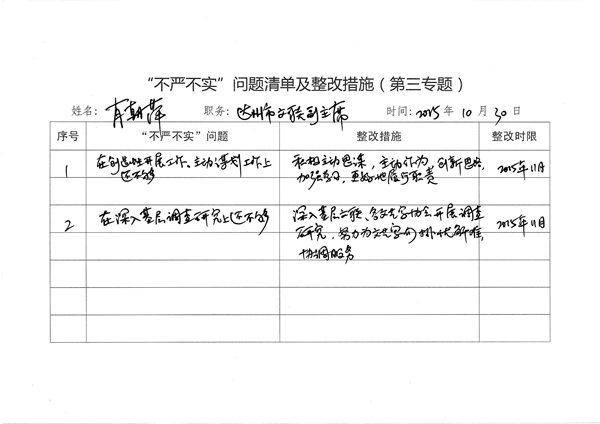 “不严不实”问题清单及整改措施（第三专题）
姓名： 肖朝萍 职务： 达州市文联副主席 时间： 2015 年 10 月 30 日
序号 “不严不实”问题 整改措施 整改时限
1 在创造性开展工作、主动谋划工作上 积极主动思谋，主动作为，创新思路， 2015年11月
还不够 加强学习，更好地履行职责
2 在深入基层调查研究上还不够 深入基层文联、各文艺家协会开展调查 2015年11月
研究，努力为文艺家们排忧解难，
协调服务